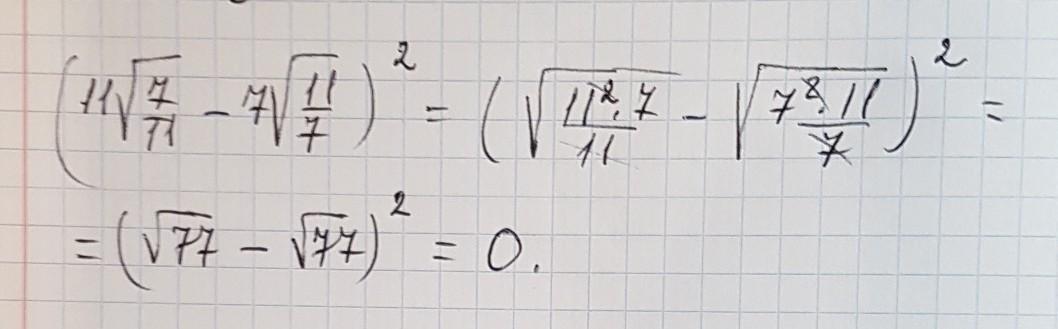 (11√(7/11) − 7√(11/7))² = (√(11²·7/11) − √(7²·11/7))² =
= (√77 − √77)² = 0.